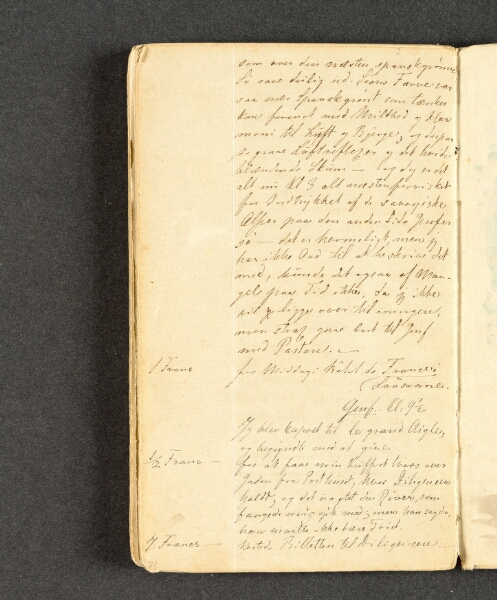 som over den næsten spanskgrønne
Sø vare deilig ud. Søens Farve var
saa nær Spanskgrønt som tænkes
kan forenet med Mildhed og Har
moni til Luft og Bjerge; og
graae Luftreflexer og det hvide
blændende Skum — og dog er det
alt nu Kl 8 alt næsten forvisket
for Indtrykket af de savoyiske
Alper paa den anden Side Genfer
sø — det er herneligt, men jeg
har ikke Ord til at beskrive det
med, kunde det ogsaa af Man-
gel paa Tid ikke, da jeg ikke
vil ligge over til imorgen,
men strax gaae bort til Genf
med Posten.
1 Franc for Middag i Hôtel de France i
Lausanne.
Genf. Kl. 9½
Jeg blev kapret til le grand Aigle,
og begyndte med at give
½ Franc — for at faae min Kuffert tvers over
Gaden fra Posthuset, hvor Diligencen
holdt; og det var den Røver, som
fangede mig, gik med; men han sagde,
han maatte ikke bære Toid.
7 Francs — kostede Billetten til Diligencen